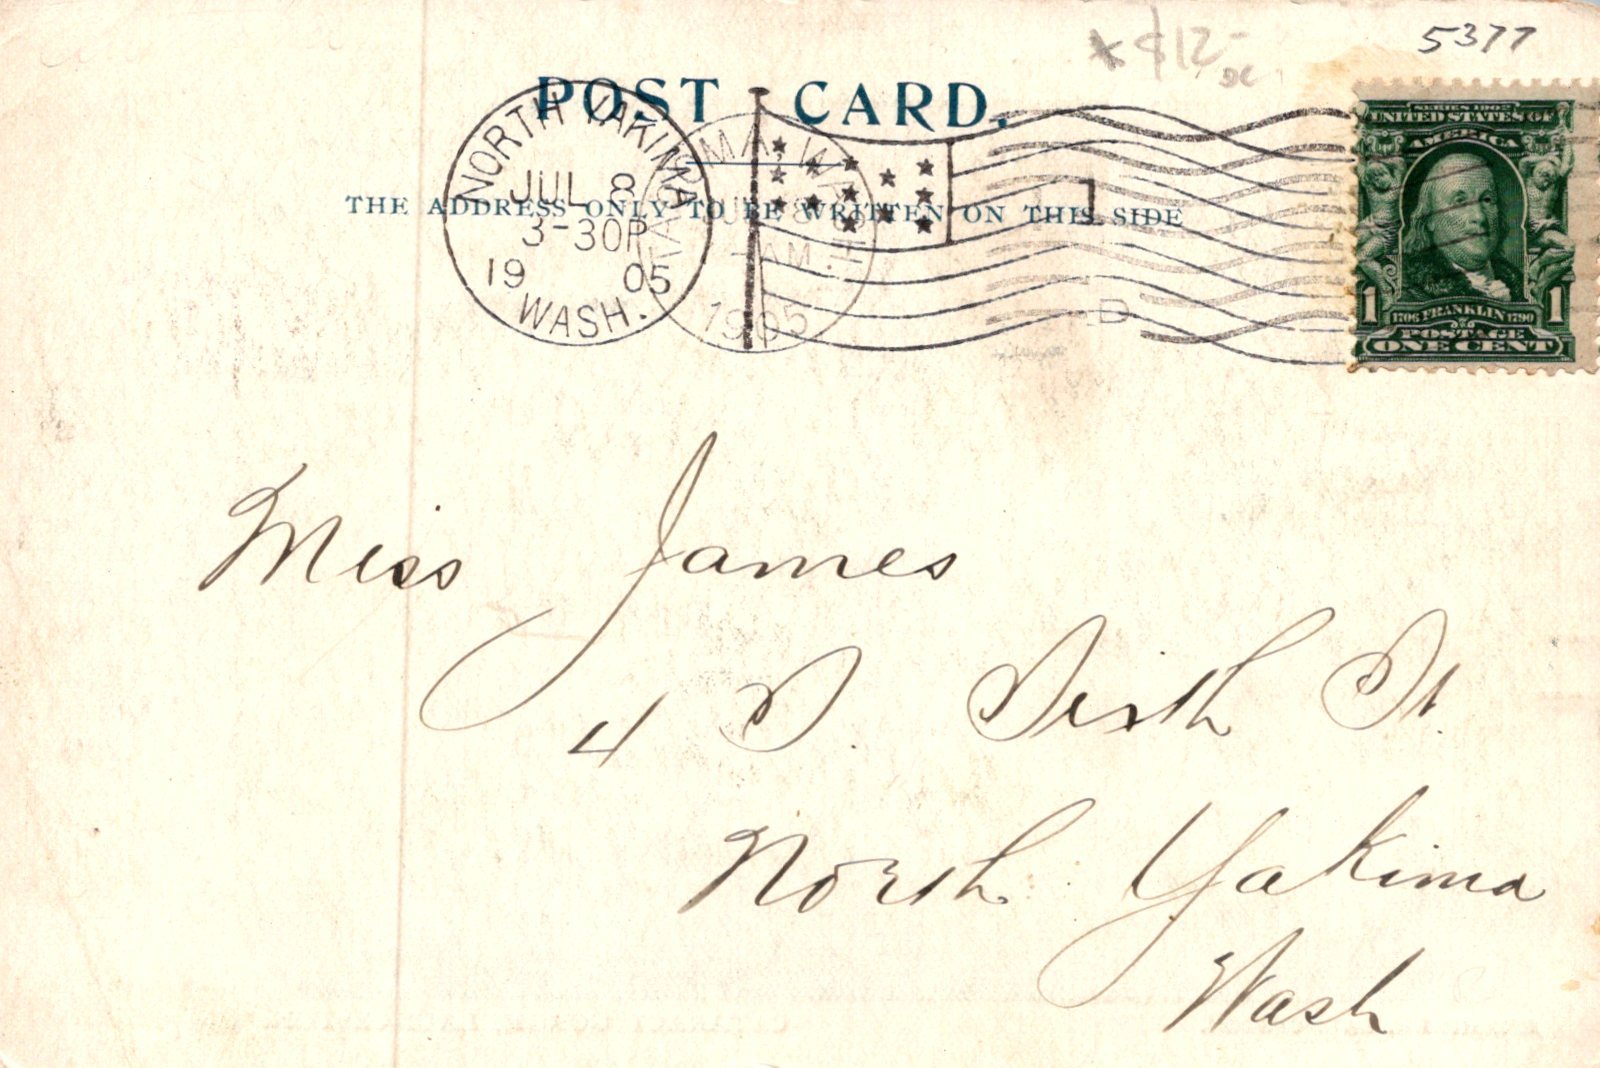 5377
* $12-
POST CARD.
THE ADDRESS ONLY TO BE WRITTEN ON THIS SIDE
NORTH YAKIMA
JUL 8
3-30P
1905
WASH.
TACOMA, WASH.
JUL 8
AM.
1905
D
SERIES 1902
UNITED STATES OF
AMERICA
1 1706 FRANKLIN 1790 1
POSTAGE
ONE CENT
Miss James
4 S. Sixth St.
North Yakima
Wash